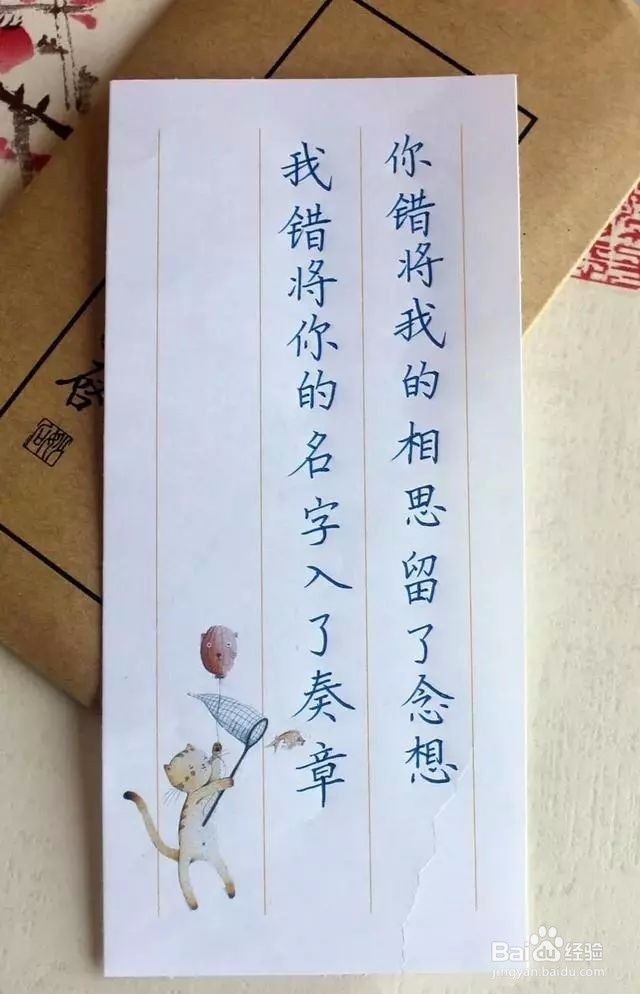 你错将我的相思留了念想
我错将你的名字入了奏章
Baidu经验
jingyan.baidu.com